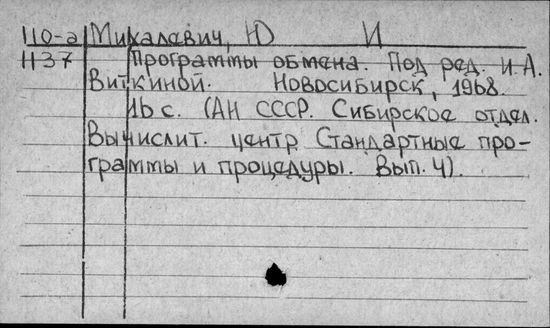 110-а Михалевич, Ю И
1137 Программы обмена. Под ред. И.А.
Виткиной. Новосибирск, 1968.
16 с. (АН СССР. Сибирское отдел.
Вычислит. центр Стандартные про-
граммы и процедуры. Вып. 4).